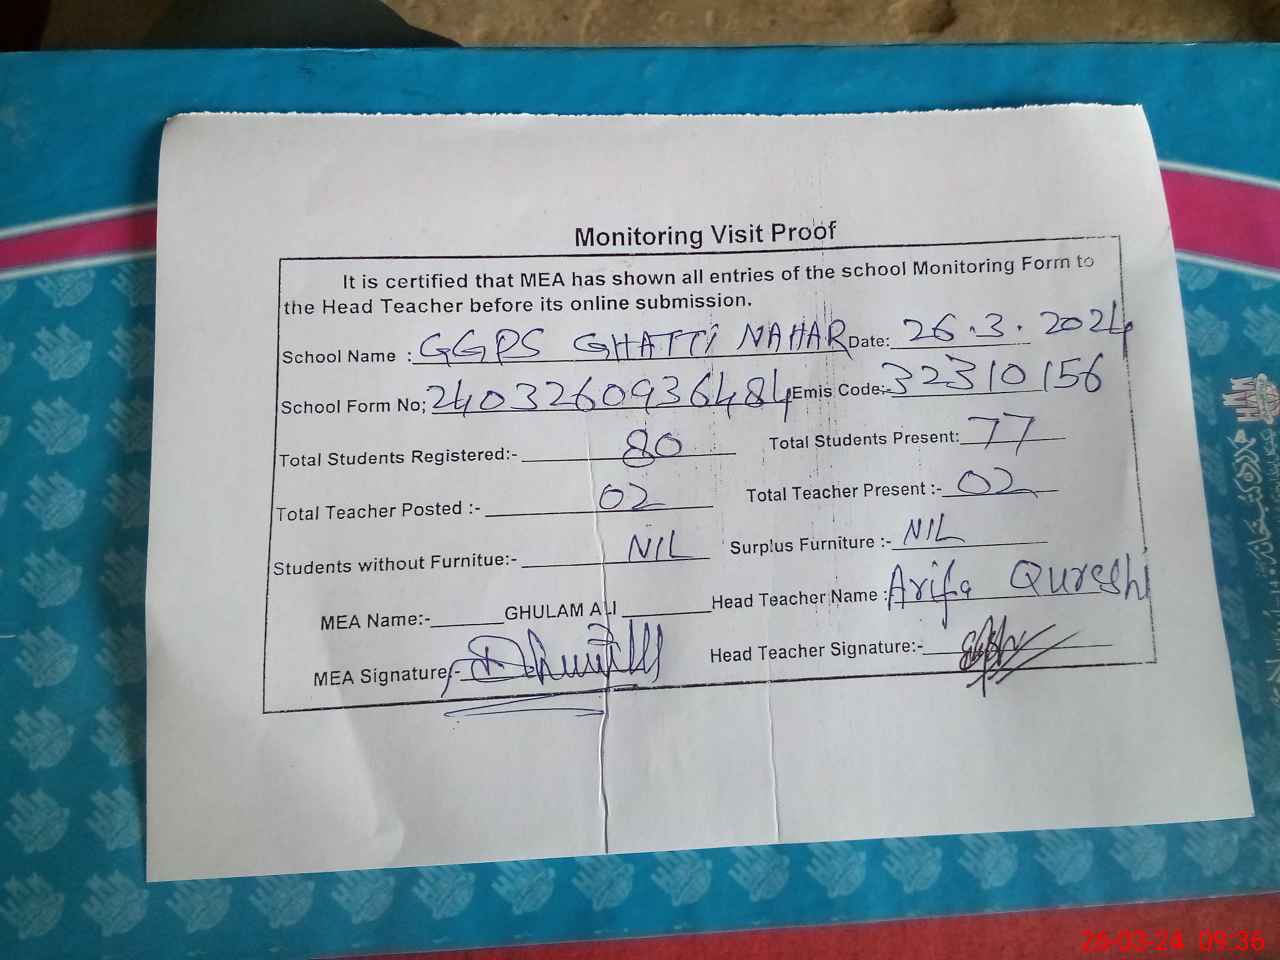 Monitoring Visit Proof
It is certified that MEA has shown all entries of the school Monitoring Form to
the Head Teacher before its online submission.
School Name : GGPS GHATTI NAHAR Date: 26.3.2024
School Form No; 2403260936484 Emis Code:- 32310156
Total Students Registered:- 80 Total Students Present: 77
Total Teacher Posted :- 02 Total Teacher Present :- 02
Students without Furnitue:- NIL Surplus Furniture :- NIL
MEA Name:- GHULAM ALI Head Teacher Name : Arifa Qureshi
MEA Signature:- Head Teacher Signature:-
26-03-24 09:36